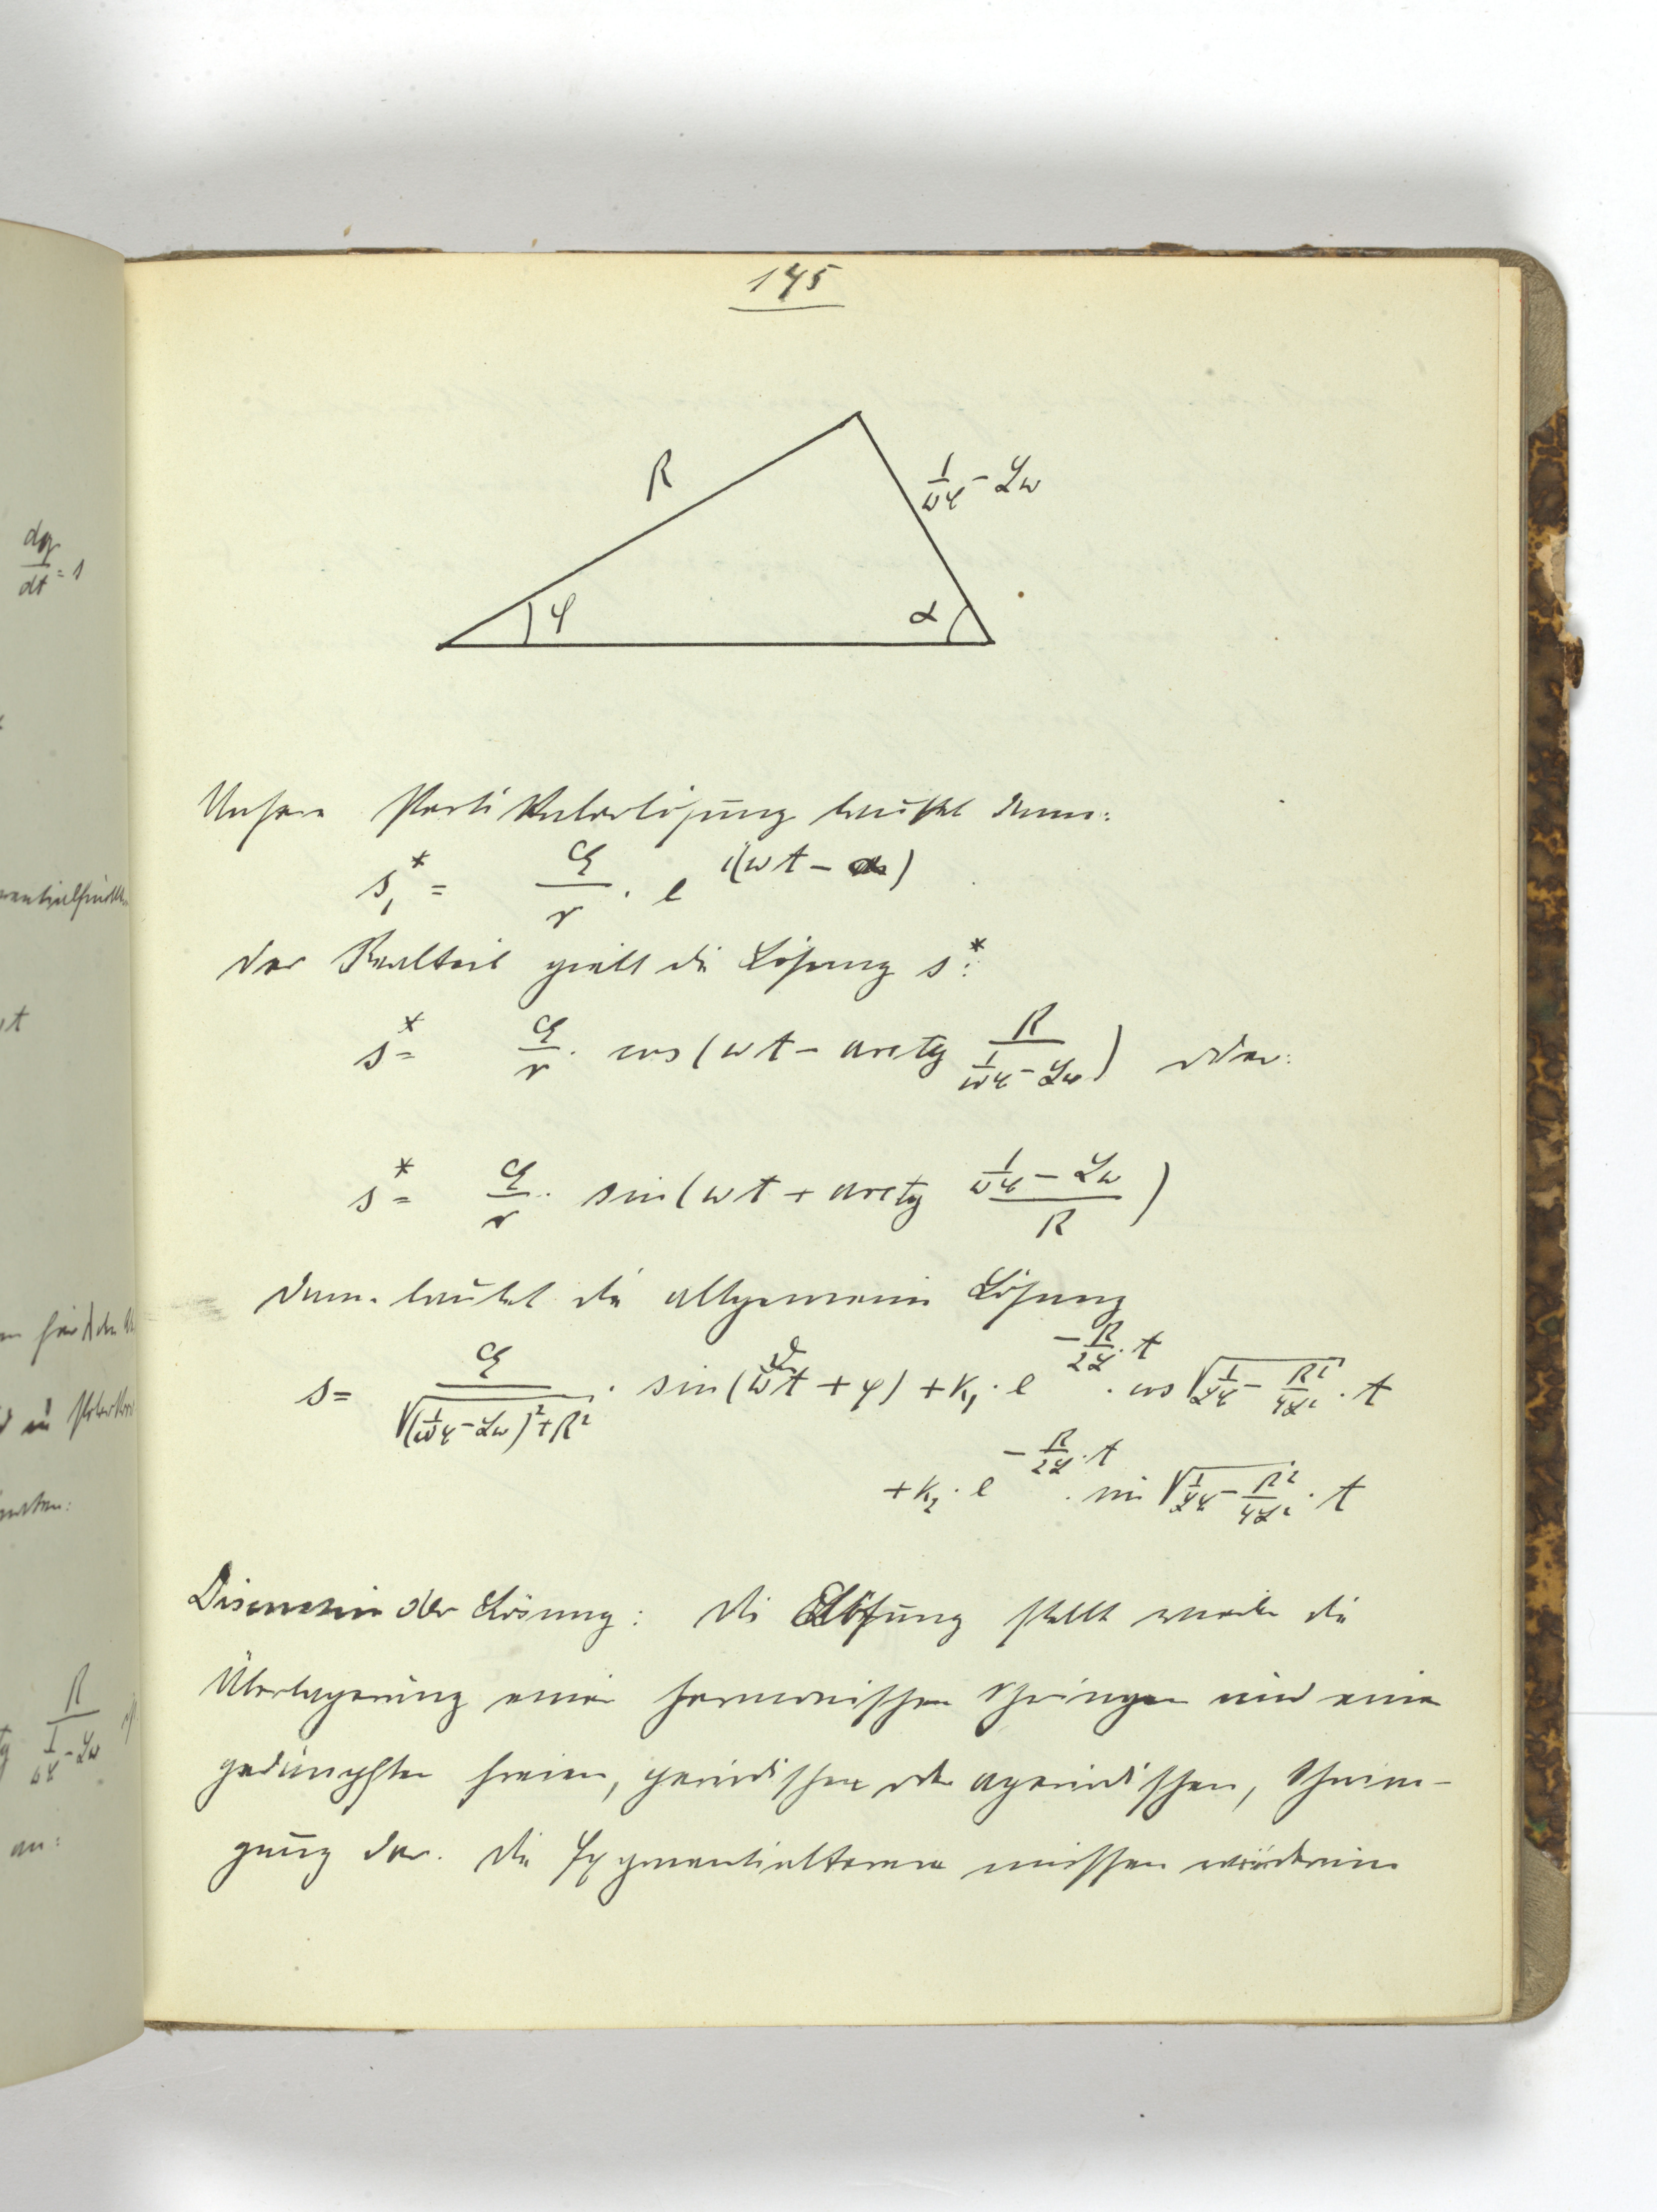 145
R
1/ωC - Lω
φ
α
Unsere Partikulärlösung lautet dann:
s₁* = a/r · e^{i(ωt - α)}
der Realteil gibt die Lösung s*:
s* = a/r · cos(ωt - arctg R/(1/ωC - Lω)) oder:
s* = a/r · sin(ωt + arctg (1/ωC - Lω)/R)
dann lautet die allgemeine Lösung
s = a/√((1/ωC - Lω)² + R²) · sin(ωt + φ) + K₁ · e^{-R/2L · t} · cos √(1/LC - R²/4L²) · t
+ K₂ · e^{-R/2L · t} · sin √(1/LC - R²/4L²) · t
Discussion der Lösung: Die Lösung stellt die
Überlagerung einer harmonischen und einer
gedämpften freien, periodischen oder aperiodischen, Schwin-
gung dar. Die Exponentialterme müssen wiederum
dq/dt = 1
R
1/ωC - Lω
an: